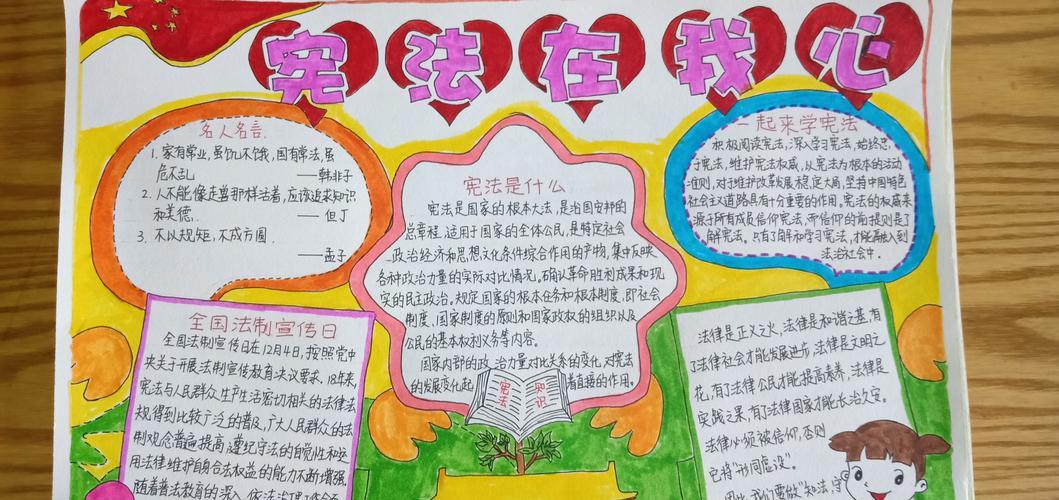 宪法在我心
名人名言
1. 家有常业，虽饥不饿，国有常法，虽
危不乱
——韩非子
2. 人不能像走兽那样活着，应该追求知识
和美德.
——但丁
3. 不以规矩，不成方圆.
——孟子
宪法是什么
宪法是国家的根本大法，是治国安邦的
总章程，适用于国家的全体公民，是特定社会
政治经济和思想文化条件综合作用的产物，集中反映
各种政治力量的实际对比情况。确认革命胜利成果和现
实的民主政治，规定国家的根本任务和根本制度，即社会
制度、国家制度的原则和国家政权的组织以及
公民的基本权利义务等内容。
国家内部的政治力量对比关系的变化，对宪法
的发展变化起
着直接的作用。
宪法
知识
一起来学宪法
积极阅读宪法，深入学习宪法，始终忠
于宪法，维护宪法权威，以宪法为根本的活动
准则，对于维护改革发展稳定大局，坚持中国特色
社会主义道路具有十分重要的作用，宪法的权
源于所有成员信仰宪法，而信仰的前提则是了
解宪法。只有了解和学习宪法，才能融入到
法治社会中.
全国法制宣传日
全国法制宣传日在12月4日，按照党中
央关于开展法制宣传教育决议要求，18年来，
宪法与人民群众生产生活密切相关的法律法
规得到比较广泛的普及，广大人民群众的法
制观念普遍提高，遵纪守法的自觉性和运
用法律维护自身合法权益的能力不断增强.
随着普法教育的深入，依法治理
法律是正义之火，法律是和谐之基，有
了法律社会才能发展进步，法律是文明之
花，有了法律公民才能提高素养，法律是
实践之果，有了法律国家才能长治久安。
法律必须被信仰，否则
它将“形同虚设”。
我们要做“知法，守